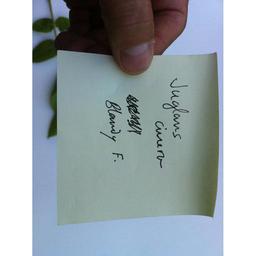 Juglans
cinera
Blandy F.